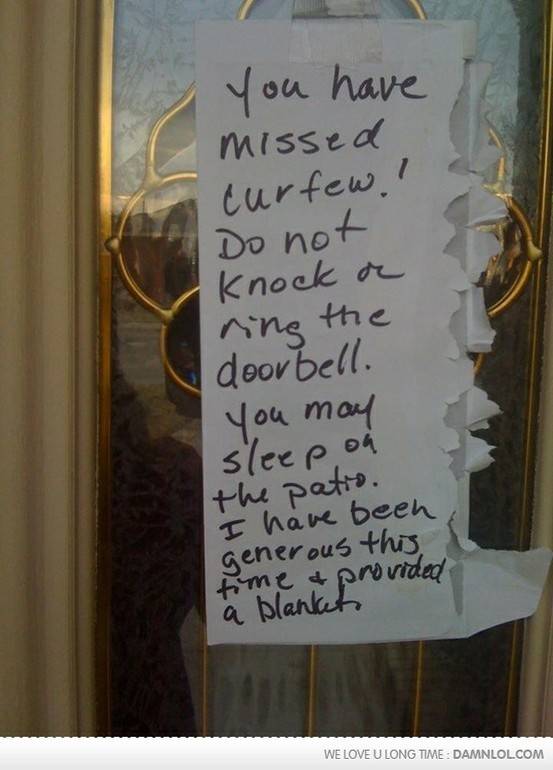 You have
missed
curfew.!
Do not
Knock or
ring the
doorbell.
You may
sleep on
the patio.
I have been
generous this
time & provided
a blanket.
WE LOVE U LONG TIME : DAMNLOL.COM